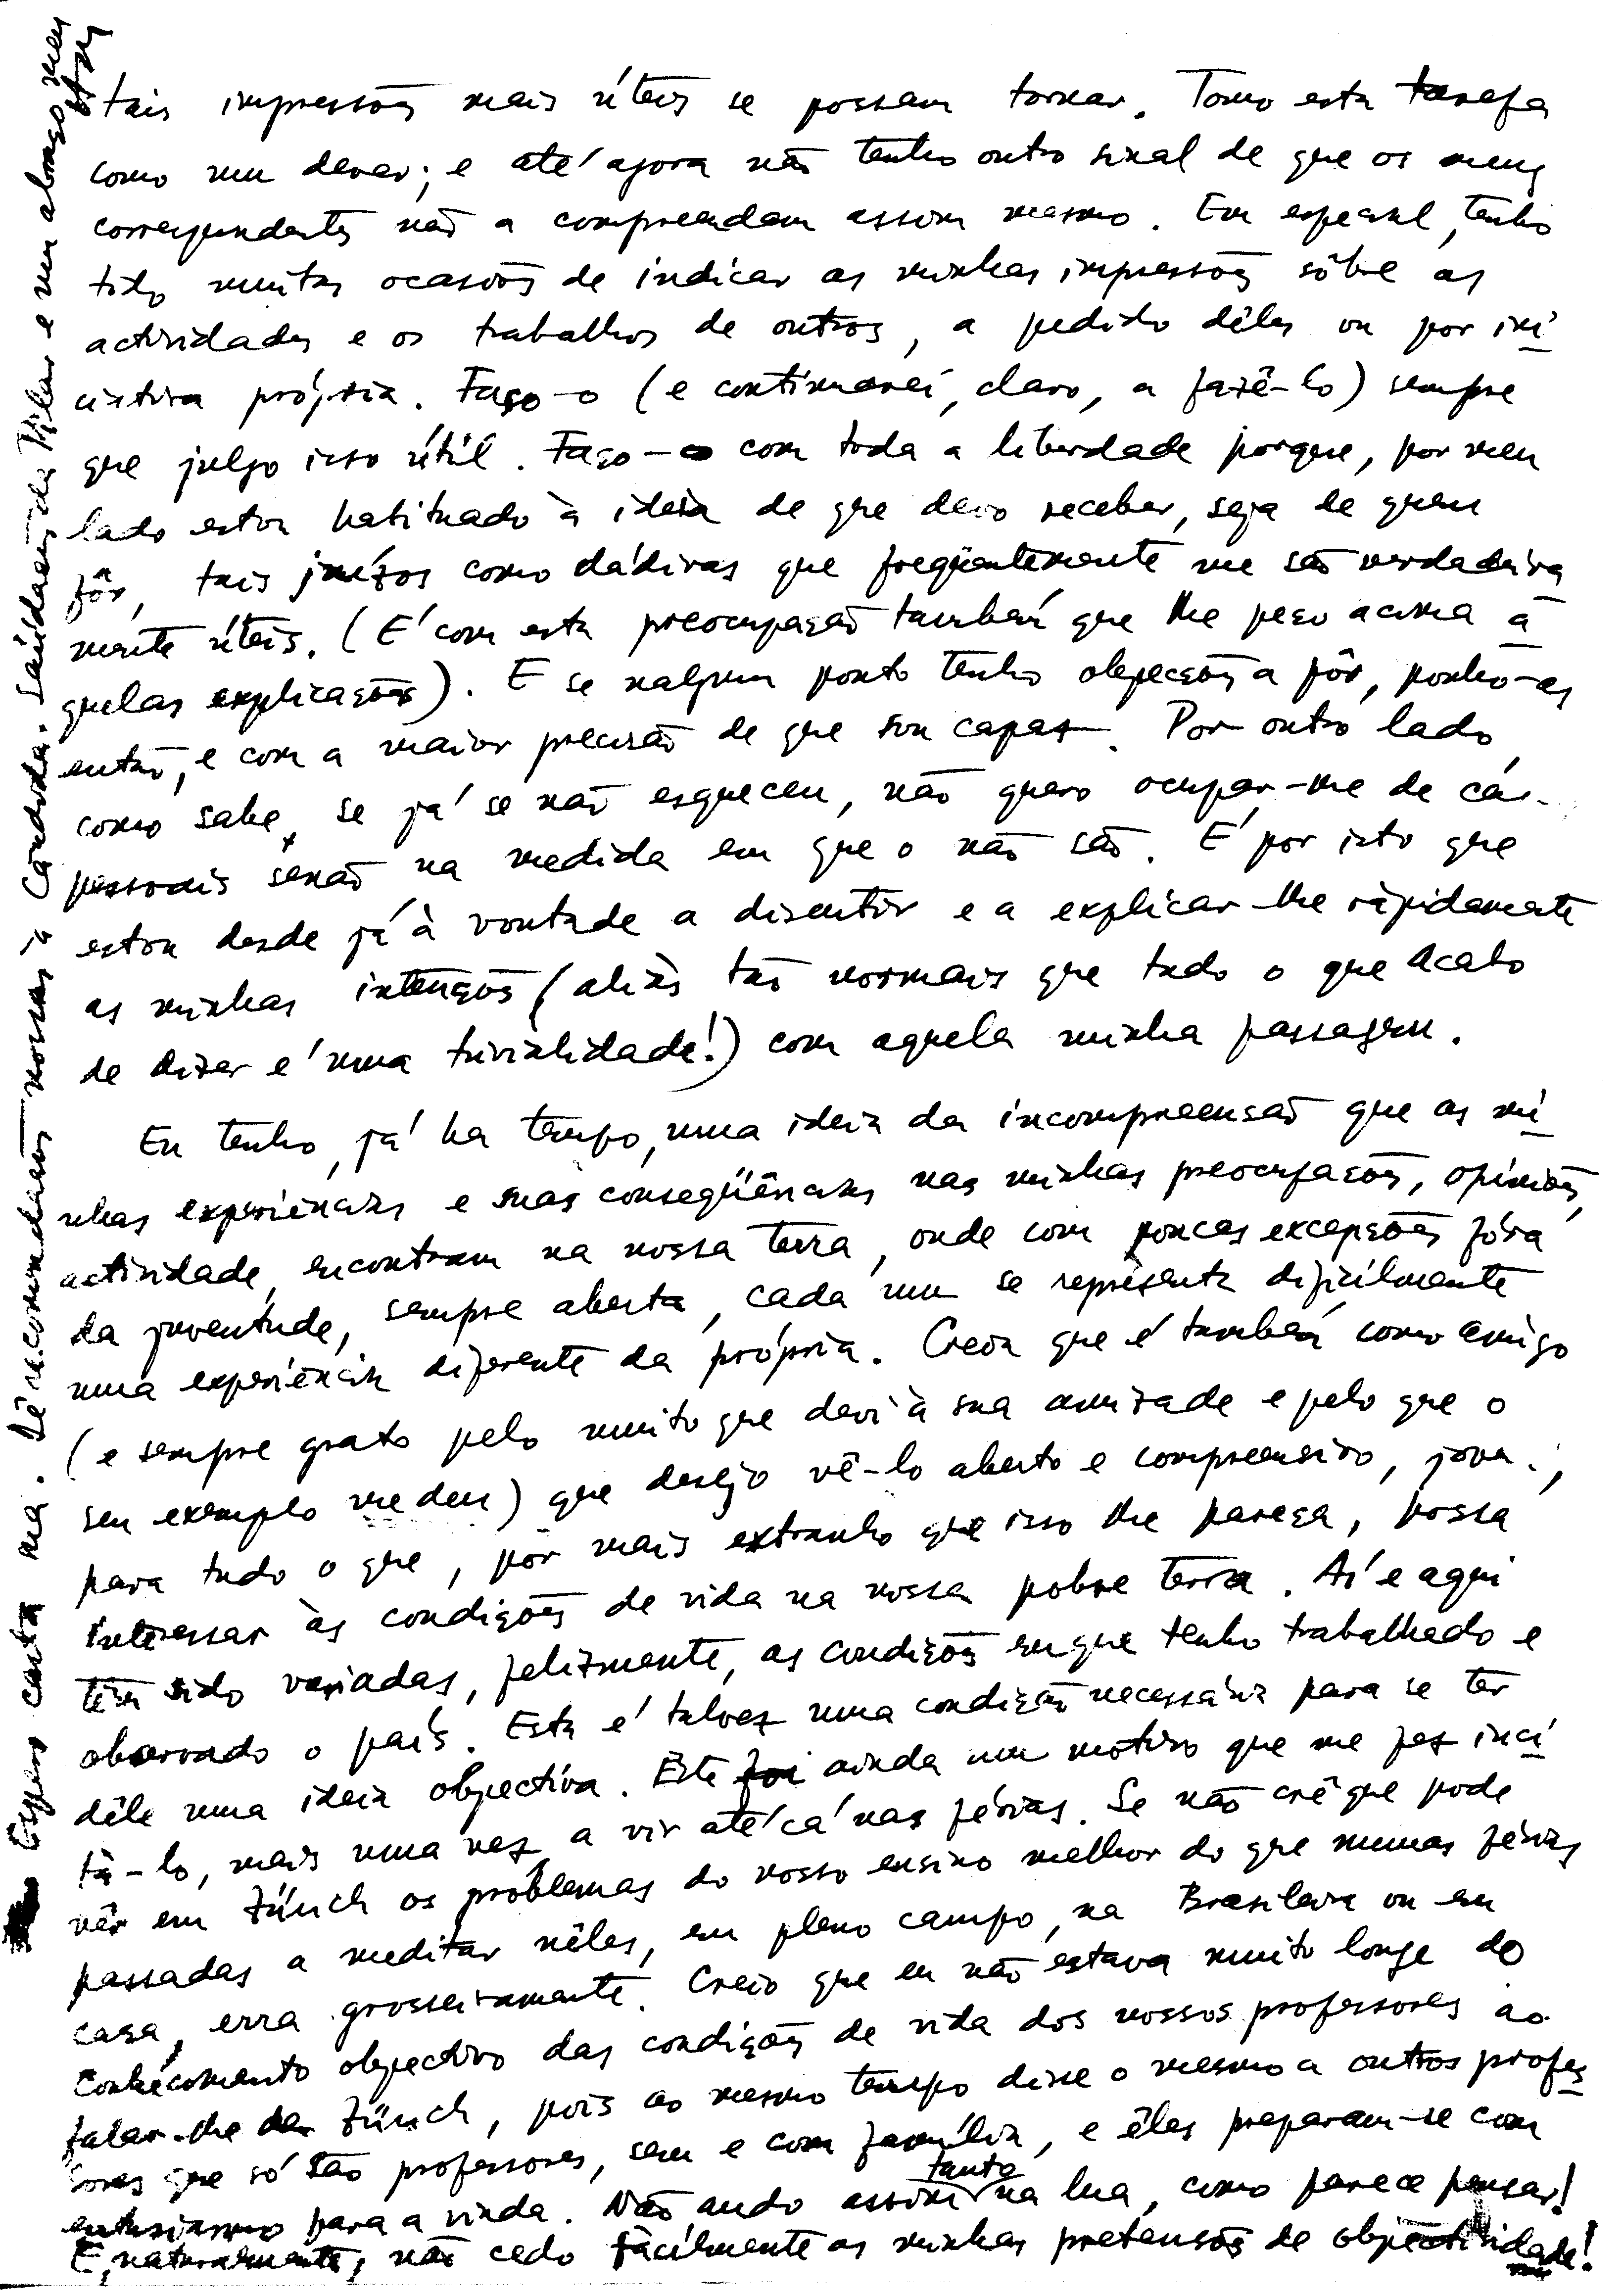 tais impressões mais úteis se possam tornar. Tomo esta tarefa
como um dever; e até agora não tenho outro sinal de que os meus
correspondentes não a compreendam assim mesmo. Em especial, tenho
tido muitas ocasiões de indicar as minhas impressões sôbre as
actividades e os trabalhos de outros, a pedido dêles ou por ini
ciativa própria. Faço-o (e continuarei, claro, a fazê-lo) sempre
que julgo isso útil. Faço-o com toda a liberdade porque, por meu
lado estou habituado à ideia de que devo receber, seja de quem
fôr, tais juízos como dádivas que freqüentemente me são verdadeira
mente úteis. (É com esta preocupação também que lhe peço acima a
quelas explicações). E se nalgum ponto tenho objecções a pôr, ponho-as
então, e com a maior precisão de que sou capaz. Por outro lado,
como sabe, se já se não esqueceu, não quero ocupar-me de
pessoais senão na medida em que o não são. É por isto que
estou desde já à vontade a discutir e a explicar-lhe ràpidamente
as minhas intenções (aliás tão normais que tudo o que acabo
de dizer é uma trivialidade!) com aquela minha passagem.
Eu tenho, já ha tempo, uma ideia da incompreensão que as mi
nhas experiências e suas conseqüências nas minhas preocupações, opiniões,
actividade, encontram na nossa terra, onde com poucas excepções fóra
da juventude, sempre aberta, cada um se representa dificilmente
uma experiência diferente da própria. Creia que é também como amigo
(e sempre grato pelo muito que devi à sua amizade e pelo que o
seu exemplo me deu) que desejo vê-lo aberto e compreensivo, jovem,
para tudo o que, por mais extranho que isso lhe pareça, possa
interessar às condições de vida na nossa pobre terra. Aí e aqui
têm sido variadas, felizmente, as condições em que tenho trabalhado e
observado o país. Esta é talvez uma condição necessária para se ter
dêle uma ideia objectiva. Êste foi ainda um motivo que me fez inci
tá-lo, mais uma vez, a vir até cá nas férias. Se não crê que pode
vêr em Zürich os problemas do nosso ensino melhor do que numas férias
passadas a meditar nêles, em pleno campo, na Brasileira ou em
casa, erra grosseiramente. Creio que eu não estava muito longe do
conhecimento objectivo das condições de vida dos nossos professores ao
falar-lhe de Zürich, pois ao mesmo tempo disse o mesmo a outros profes
sores que só são professores, sem e com família, e êles preparam-se com
entusiasmo para a vinda. Não ando assim tanto na lua, como parece pensar!
E, naturalmente, não cedo fàcilmente as minhas pretensões de objectividade!
Espero carta sua. Dê recomendações nossas à Candida. Saüdações da Pilar e um abraço meu